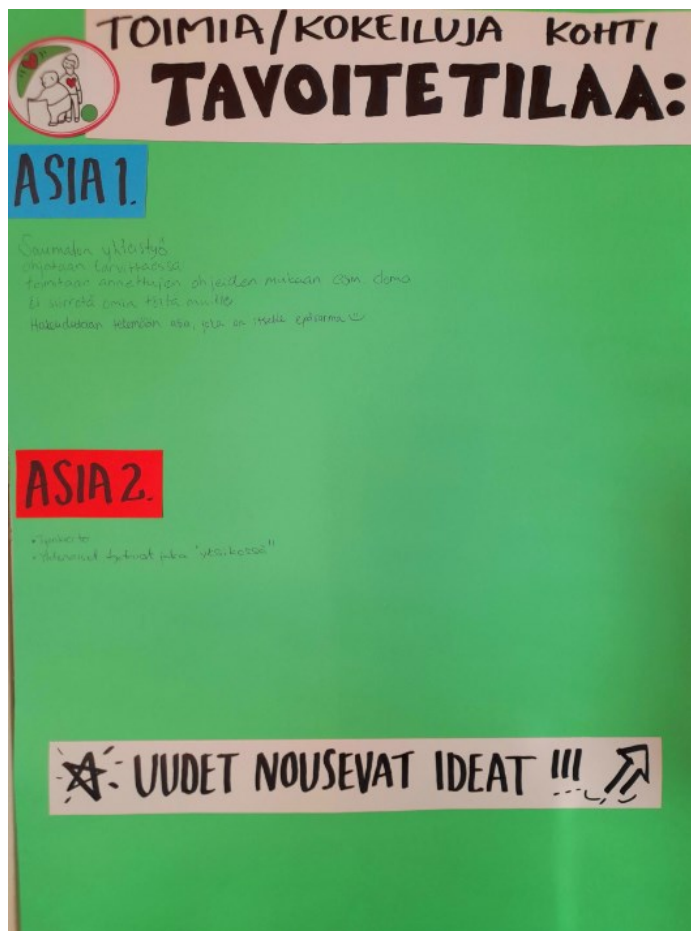 TOIMIA/KOKEILUJA KOHTI
TAVOITETILAA:
ASIA 1.
Saumaton yhteistyö
ohjataan tarvittaessa
toimitaan annettujen ohjeiden mukaan esim. doma
Ei siirretä omia töitä muille
Hakeudutaan tekemään asia, joka on itselle epävarma
ASIA 2.
• Työkierto
• Yhtenäiset työtavat joka "yksikössä"
UUDET NOUSEVAT IDEAT !!!